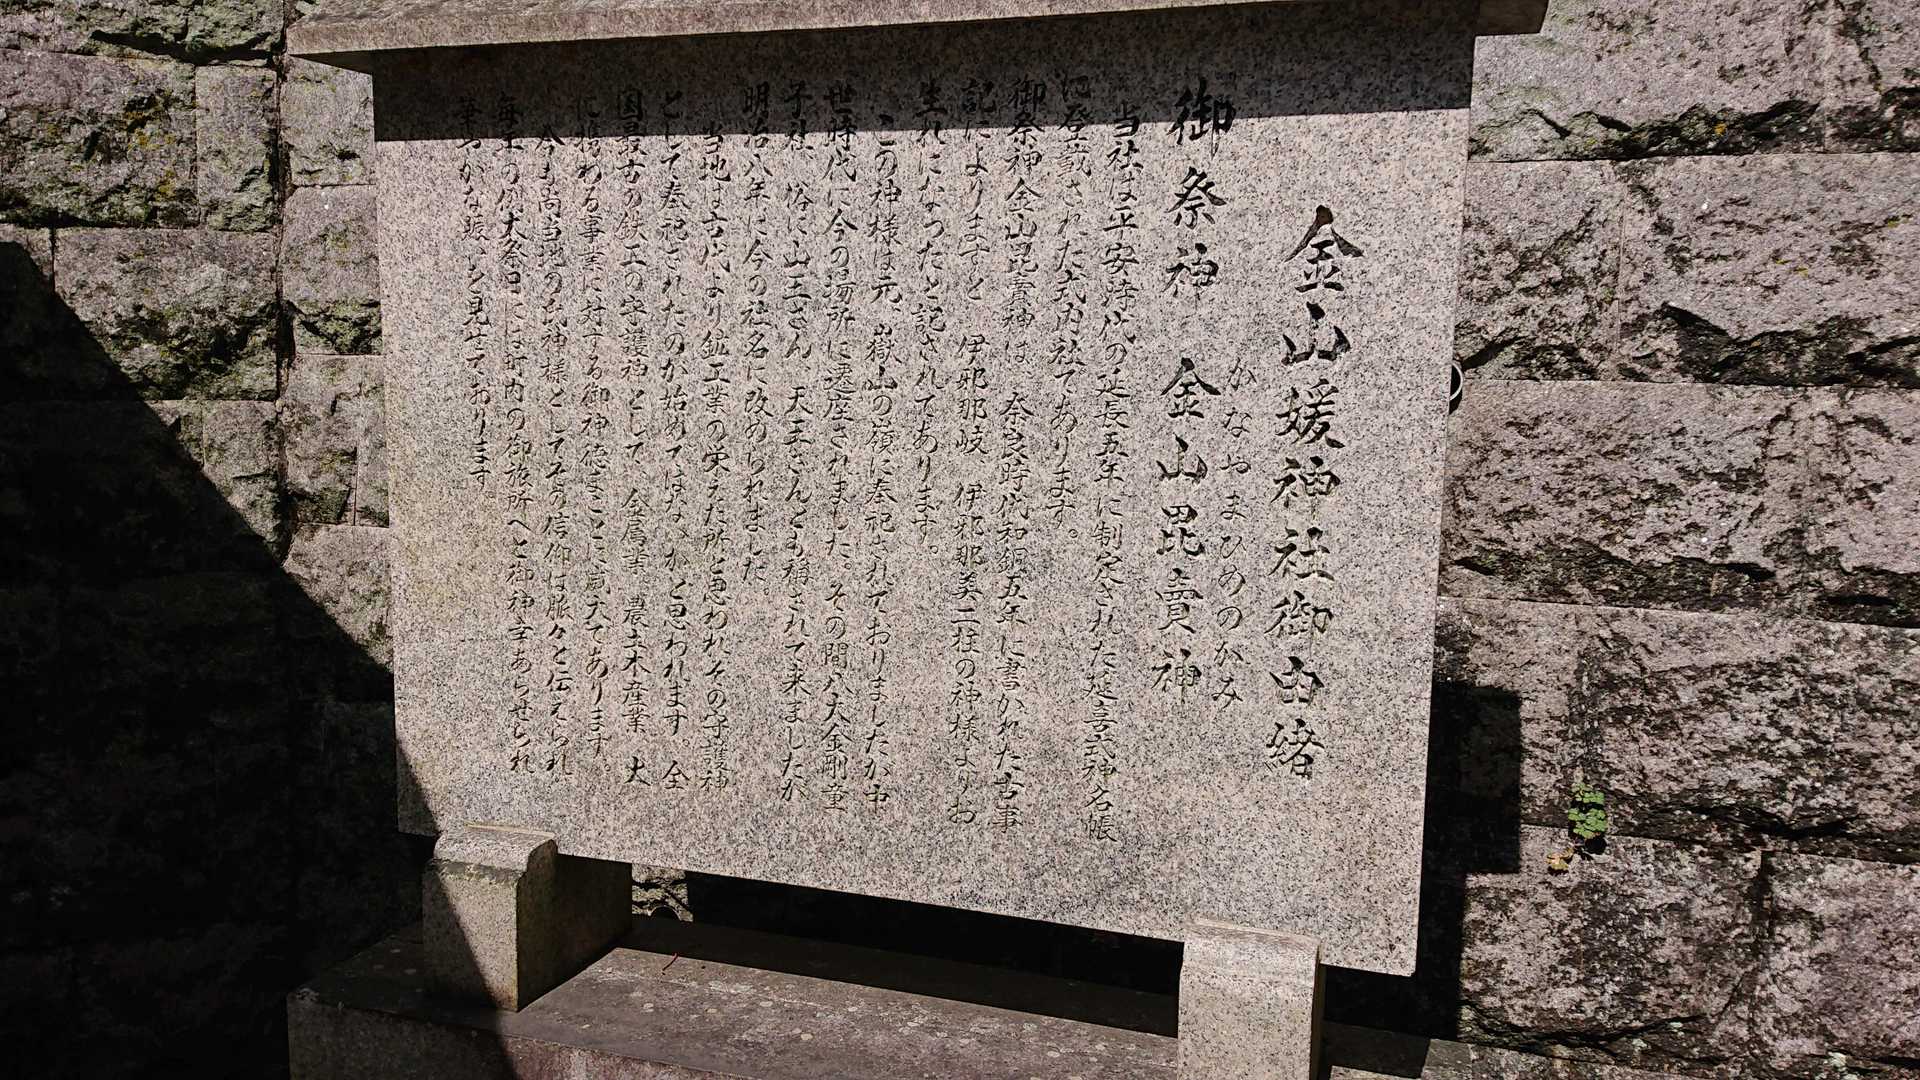 金山媛神社御由緒
かなやまひめのかみ
御祭神 金山毘賣神
当社は平安時代の延長五年に制定された延喜式神名帳
に登載された式内社であります。
御祭神金山毘賣神は、奈良時代和銅五年に書かれた古事
記によりますと 伊邪那岐 伊邪那美二柱の神様よりお
生れになったと記されてあります。
この神様は元、嶽山の嶺に奉祀されておりましたが中
世時代に今の場所に遷座されました。その間八大金剛童
子社、俗に山王さん、天王さんとも称されて来ましたが
明治八年に今の社名に改められました。
当地は古代より鉱工業の栄えた所と思われその守護神
として奉祀されたのが始めではないかと思われます。全
国最古の鉄工の守護神として 金属業、農土木産業 大
に携わる事業に対する御神徳まことに甚大であります。
今も尚当地の氏神様としてその信仰は脈々と伝えられ
毎年の例大祭日には町内の御旅所へと御神幸あらせられ
華やかな賑いを見せております。